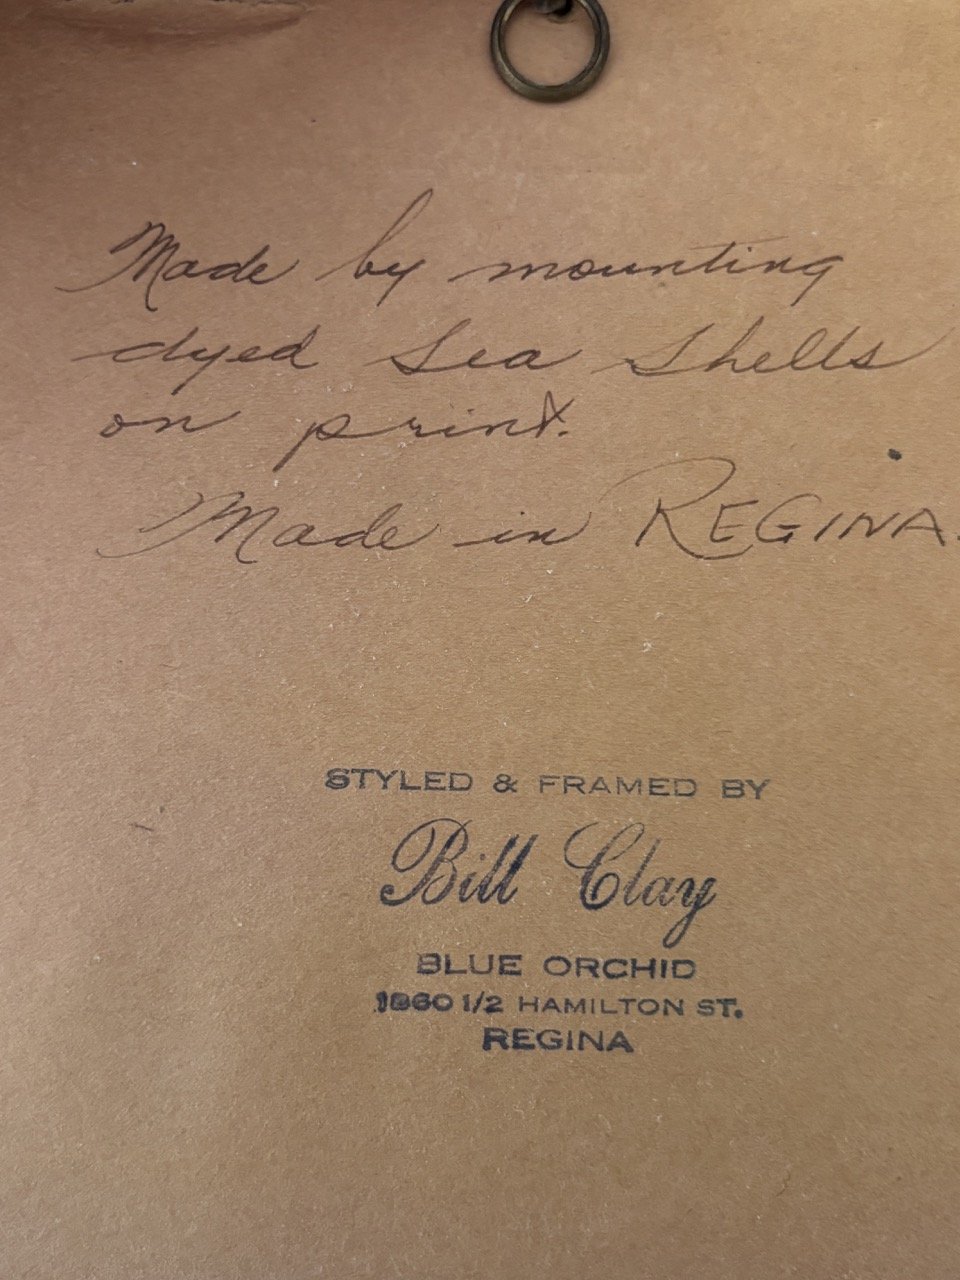 Made by mounting
dyed Sea Shells
on print.
Made in REGINA.
STYLED & FRAMED BY
Bill Clay
BLUE ORCHID
1860 1/2 HAMILTON ST.
REGINA